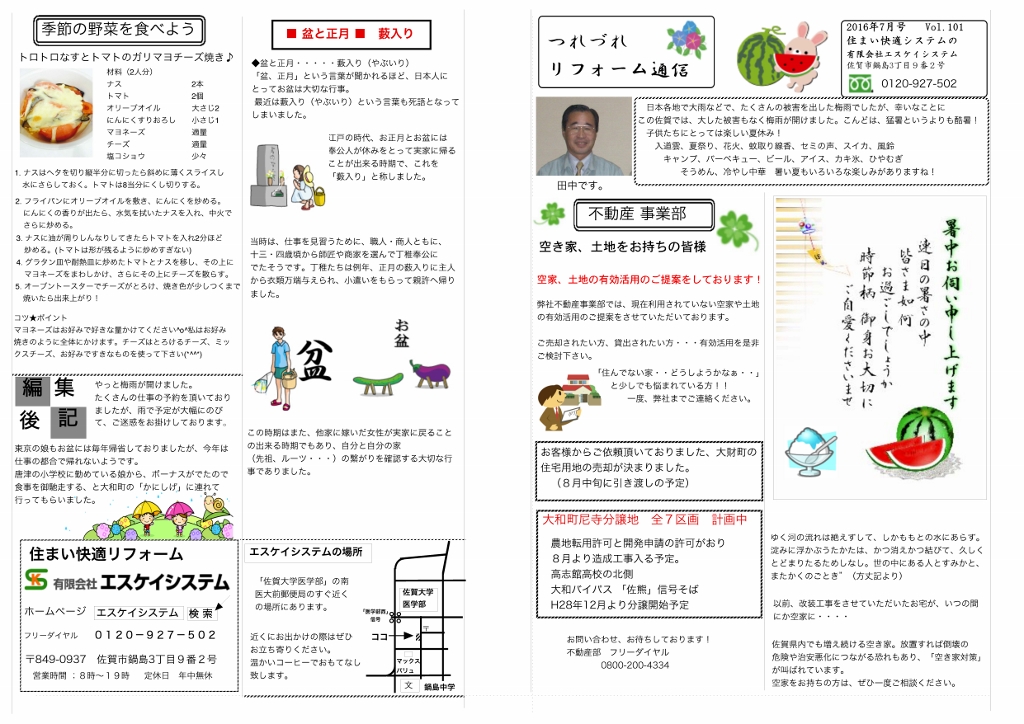 つれづれ
リフォーム通信
2016年7月号　Vol.101
住まい快適システムの
有限会社エスケイシステム
佐賀市鍋島3丁目９番２号
0120-927-502
日本各地で大雨などで、たくさんの被害を出した梅雨でしたが、幸いなことに
この佐賀では、大した被害もなく梅雨が開けました。こんどは、猛暑というよりも酷暑！
子供たちにとっては楽しい夏休み！
入道雲、夏祭り、花火、蚊取り線香、セミの声、スイカ、風鈴
キャンプ、バーベキュー、ビール、アイス、カキ氷、ひやむぎ
そうめん、冷やし中華　暑い夏もいろいろな楽しみがありますね！
田中です。
不動産 事業部
空き家、土地をお持ちの皆様
空家、土地の有効活用のご提案をしております！
弊社不動産事業部では、現在利用されていない空家や土地
の有効活用のご提案をさせていただいております。
ご売却されたい方、貸出されたい方・・・有効活用を是非
ご検討下さい。
「住んでない家・・どうしようかなぁ・・」
と少しでも悩まれている方！！
一度、弊社までご連絡ください。
お客様からご依頼頂いておりました、大財町の
住宅用地の売却が決まりました。
（８月中旬に引き渡しの予定）
大和町尼寺分譲地　全７区画　計画中
農地転用許可と開発申請の許可がおり
８月より造成工事入る予定。
高志館高校の北側
大和バイパス 「佐熊」信号そば
H28年12月より分譲開始予定
お問い合わせ、お待ちしております！
不動産部　フリーダイヤル
0800-200-4334
暑中お伺い申し上げます
連日の暑さの中
皆さま如何
お過ごしでしょうか
時節柄 御身お大切に
ご自愛くださいませ
ゆく河の流れは絶えずして、しかももとの水にあらず。
淀みに浮かぶうたかたは、かつ消えかつ結びて、久しく
とどまりたるためしなし。世の中にある人とすみかと、
またかくのごとき”（方丈記より）
以前、改装工事をさせていただいたお宅が、いつの間
にか空家に・・・・
佐賀県内でも増え続ける空き家。放置すれば倒壊の
危険や治安悪化につながる恐れもあり、「空き家対策」
が叫ばれています。
空家をお持ちの方は、ぜひ一度ご相談ください。
季節の野菜を食べよう
トロトロなすとトマトのガリマヨチーズ焼き♪
材料（2人分）
ナス　2本
トマト　2個
オリーブオイル　大さじ2
にんにくすりおろし　小さじ1
マヨネーズ　適量
チーズ　適量
塩コショウ　少々
1. ナスはヘタを切り縦半分に切ったら斜めに薄くスライスし
水にさらしておく。トマトは8当分にくし切りする。
2. フライパンにオリーブオイルを敷き、にんにくを炒める。
にんにくの香りが出たら、水気を拭いたナスを入れ、中火で
さらに炒める。
3. ナスに油が周りしんなりしてきたらトマトを入れ2分ほど
炒める。(トマトは形が残るように炒めすぎない)
4. グラタン皿や耐熱皿に炒めたトマトとナスを移し、その上に
マヨネーズをまわしかけ、さらにその上にチーズを散らす。
5. オーブントースターでチーズがとろけ、焼き色が少しつくまで
焼いたら出来上がり！
コツ★ポイント
マヨネーズはお好みで好きな量かけてください^o^私はお好み
焼きのように全体にかけます。チーズはとろけるチーズ、ミッ
クスチーズ、お好みですきなものを使って下さい(*^^*)
編集
後記
やっと梅雨が開けました。
たくさんの仕事の予約を頂いており
ましたが、雨で予定が大幅にのび
て、ご迷惑をお掛けしております。
東京の娘もお盆には毎年帰省しておりましたが、今年は
仕事の都合で帰れないようです。
唐津の小学校に勤めている娘から、ボーナスがでたので
食事を御馳走する、と大和町の「かにしげ」に連れて
行ってもらいました。
住まい快適リフォーム
SK 有限会社 エスケイシステム
ホームページ　エスケイシステム　検 索
フリーダイヤル　０１２０－９２７－５０２
〒849-0937　佐賀市鍋島３丁目９番２号
営業時間 ：８時～１９時　定休日　年中無休
■ 盆と正月 ■　藪入り
◆盆と正月・・・・・藪入り（やぶいり）
「盆、正月」という言葉が聞かれるほど、日本人に
とってお盆は大切な行事。
最近は藪入り（やぶいり）という言葉も死語となって
しまいました。
江戸の時代、お正月とお盆には
奉公人が休みをとって実家に帰る
ことが出来る時期で、これを
「藪入り」と称しました。
当時は、仕事を見習うために、職人・商人ともに、
十三・四歳頃から師匠や商家を選んで丁稚奉公に
でたそうです。丁稚たちは例年、正月の藪入りに主人
から衣類万端与えられ、小遣いをもらって親許へ帰り
ました。
盆
お盆
この時期はまた、他家に嫁いだ女性が実家に戻ること
の出来る時期でもあり、自分と自分の家
（先祖、ルーツ・・・）の繋がりを確認する大切な行
事でありました。
エスケイシステムの場所
「佐賀大学医学部」の南
医大前郵便局のすぐ近く
の場所にあります。
近くにお出かけの際はぜひ
お立ち寄りください。
温かいコーヒーでおもてなし
致します。
佐賀大学
医学部
「医学部西」
信号
ココ
〒
マックス
バリュ
文
鍋島中学